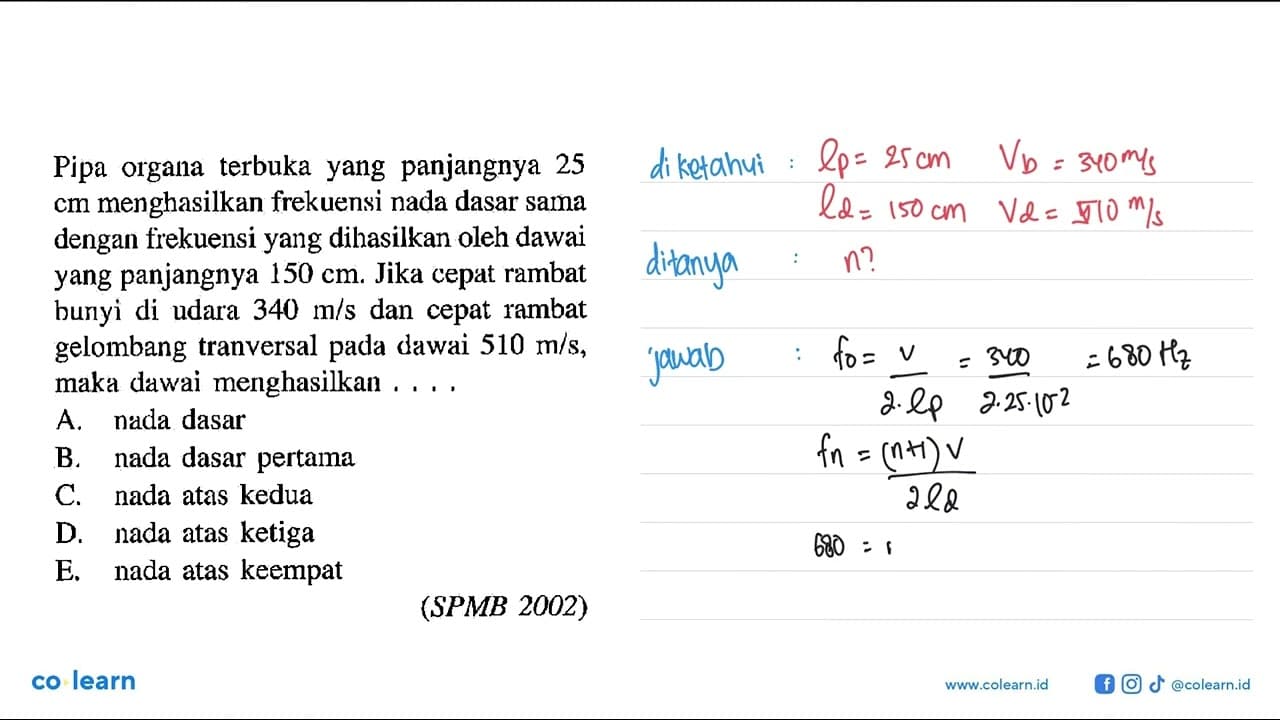 Pipa organa terbuka yang panjangnya 25
cm menghasilkan frekuensi nada dasar sama
dengan frekuensi yang dihasilkan oleh dawai
yang panjangnya 150 cm. Jika cepat rambat
bunyi di udara 340 m/s dan cepat rambat
gelombang tranversal pada dawai 510 m/s,
maka dawai menghasilkan . . . .
A. nada dasar
B. nada dasar pertama
C. nada atas kedua
D. nada atas ketiga
E. nada atas keempat
(SPMB 2002)
diketahui : lp = 25 cm Vb = 340 m/s
ld = 150 cm Vd = 510 m/s
ditanya : n?
jawab : fo = v / 2.lp = 340 / 2.25.10⁻² = 680 Hz
fn = (n+1) V / 2ld
680 =
co learn
www.colearn.id
@colearn.id